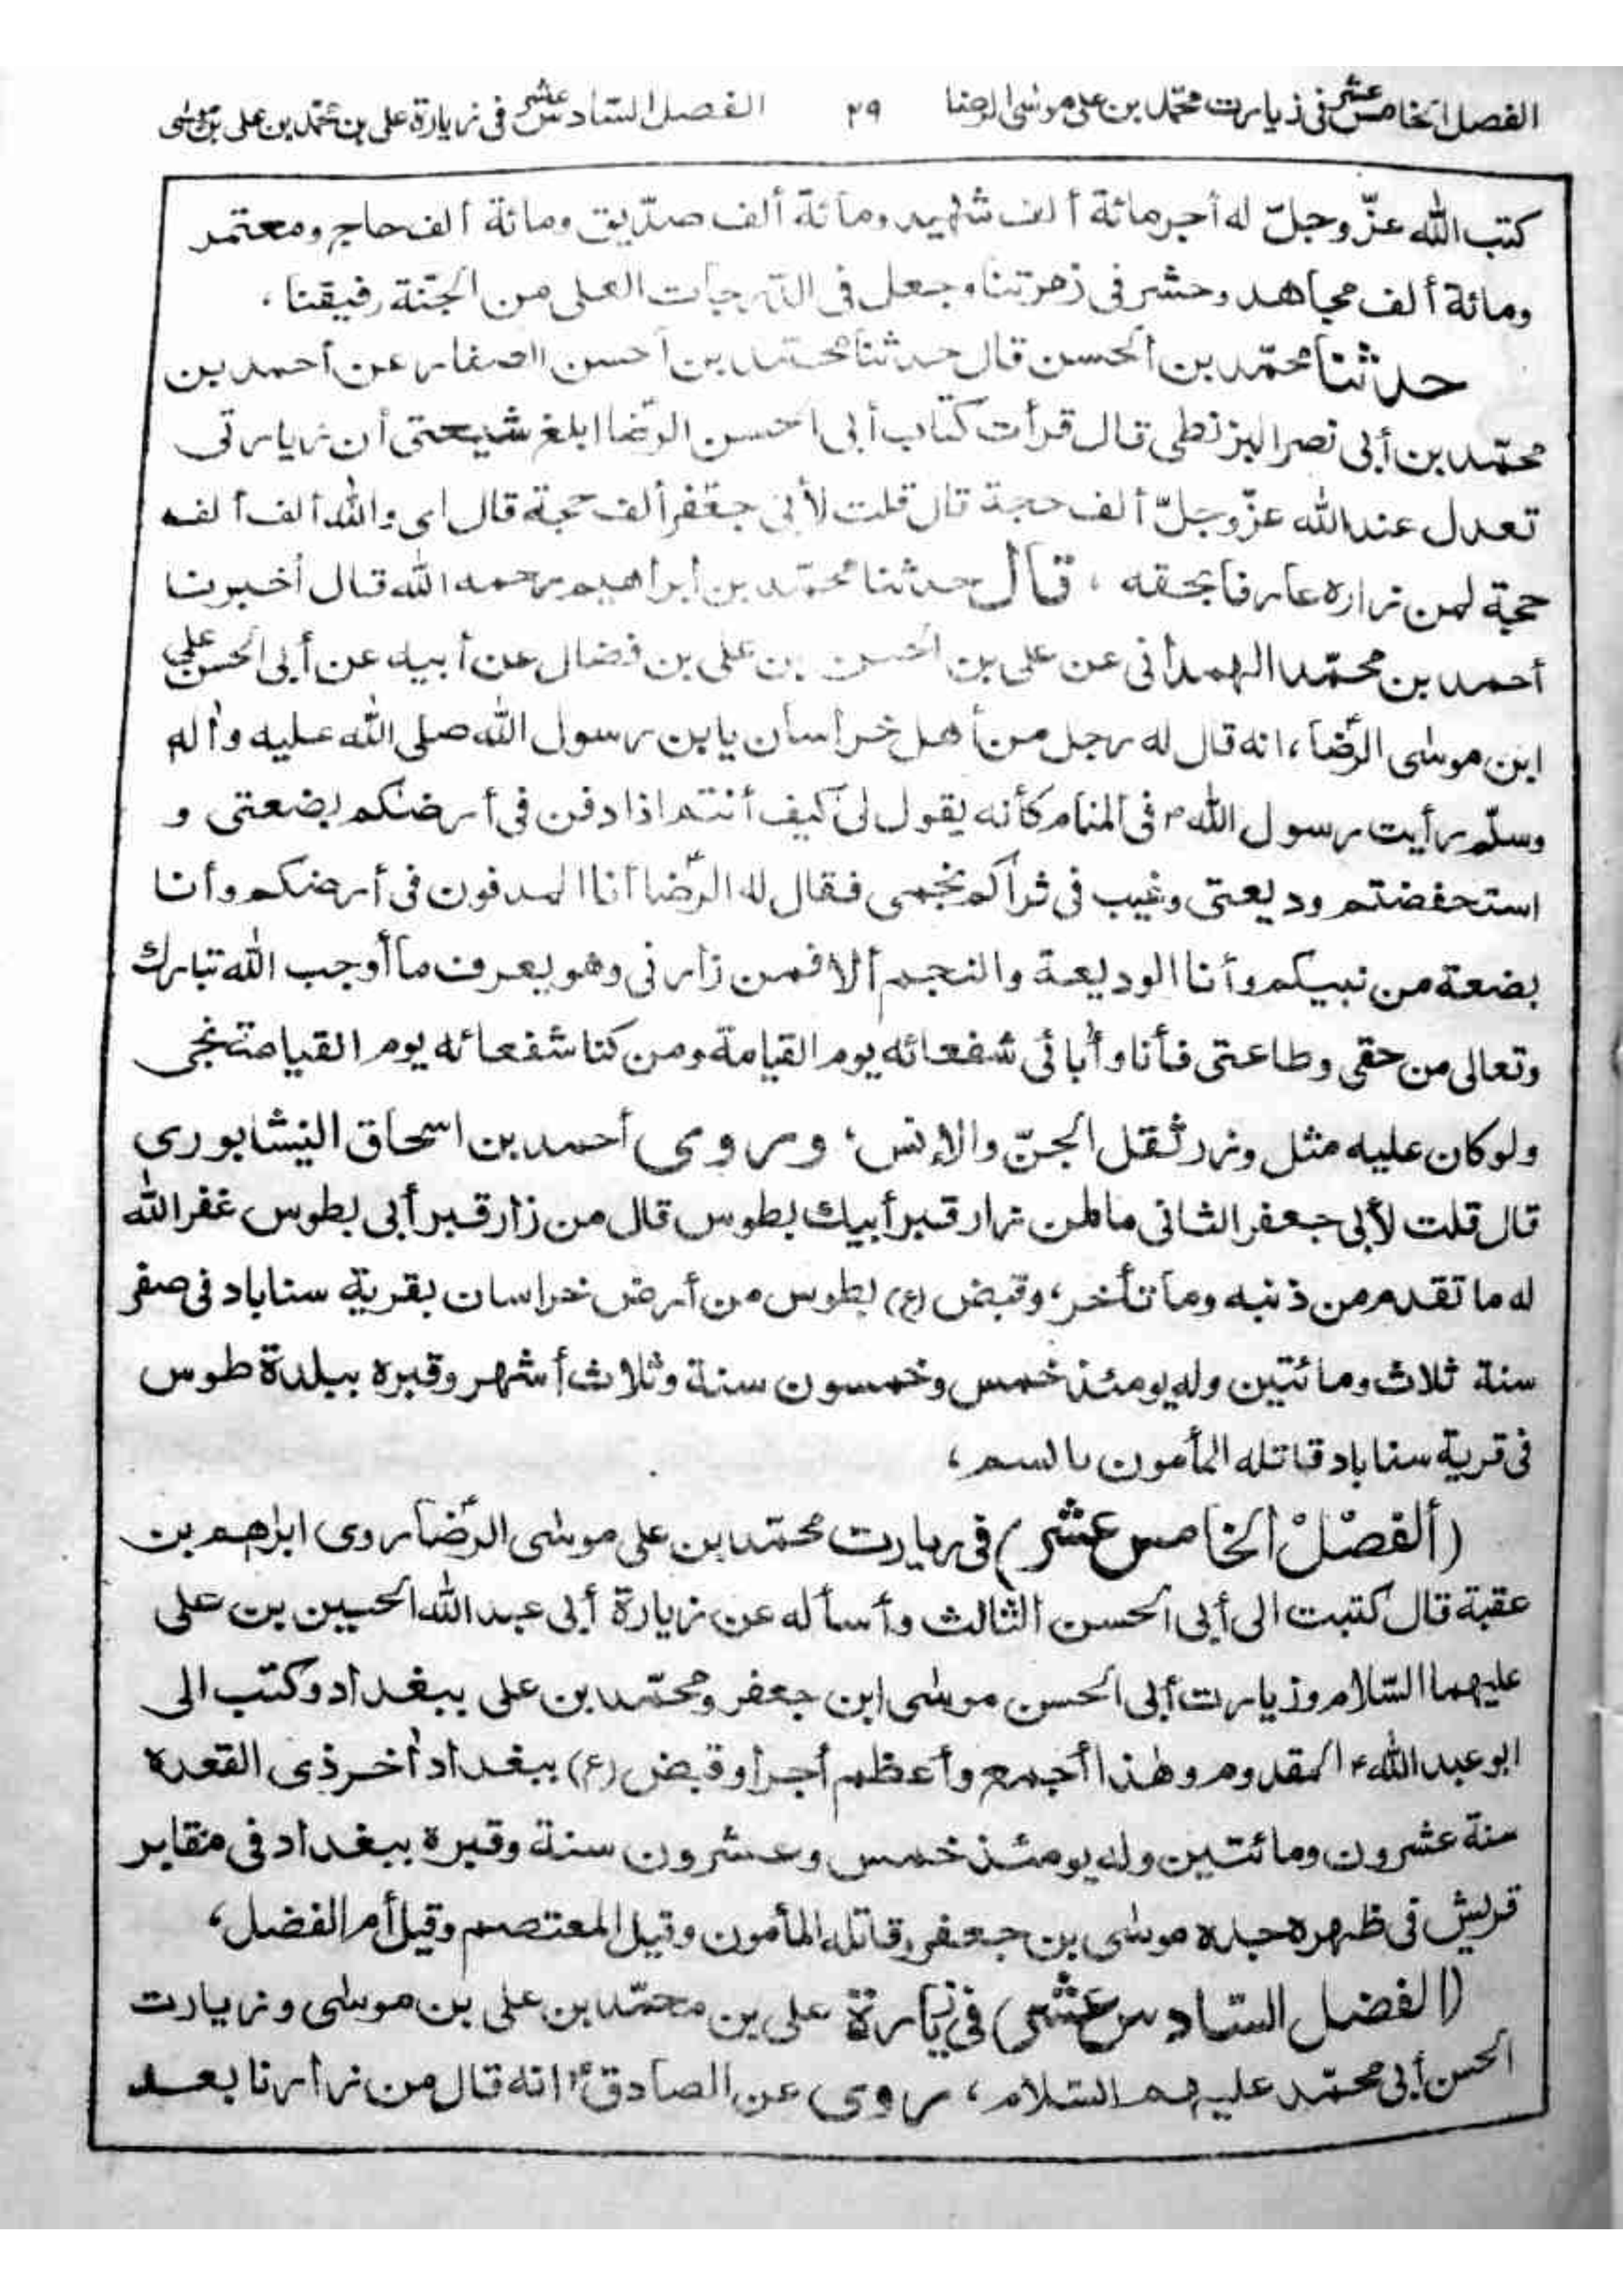 الفصل الخامس عشر في ذيارت محمّد بن على موسى الرضا ٢٩ الفصل السّادس عشر في زيارة على بن محمّد بن على بن موسى
كتب الله عزّ وجلّ له أجر مائة ألف شهيد ومائة ألف صدّيق ومائة ألف حاج ومعتمر
ومائة ألف مجاهد وحشر في زمرتنا وجعل في الدّرجات العلى من الجنّة رفيقنا ،
حدثنا محمّد بن ألحسن قال حدثنا محمّد بن أحسن الصفار عن أحمد بن
محمّد بن أبى نصر البزنطى قال قرأت كتاب أبى احسن الرّضا ابلغ شيعتى أن زيارتى
تعدل عند الله عزّ وجلّ ألف حجة قال قلت لأبى جعفر ألف حجة قال اى والله ألف ألف
حجة لمن زاره عارفا بحقه ، قال حدثنا محمّد بن ابراهيم رحمه الله قال أخبرنا
أحمد بن محمّد الهمدانى عن على بن احسن بن على بن فضال عن أبيه عن أبى الحسن على
ابن موسى الرّضا، انه قال له رجل من أهل خراسان يا بن رسول الله صلى الله عليه وأله
وسلّم رأيت رسول الله ۴ فى المنام كأنه يقول لى كيف أنتم اذا دفن فى أرضكم بضعتى و
استحفضتم وديعتى وغيب فى ثراكم نجمى فقال له الرّضا أنا المدفون فى أرضكم وأنا
بضعة من نبيكم وأنا الوديعة والنجم ألا فمن زارنى وهو يعرف ما أوجب الله تبارك
وتعالى من حقى وطاعتى فأنا وأبائى شفعائه يوم القيامة ومن كنا شفعائه يوم القيامة نجى
ولو كان عليه مثل وزر ثقل الجنّ والإنس، وروى أحمد بن اسحاق النيشابورى
قال قلت لأبى جعفر الثانى ما لمن زار قبر أبيك بطوس قال من زار قبر أبى بطوس غفر الله
له ما تقدم من ذنبه وما تأخر، وقبض (ع) بطوس من أرض خراسان بقرية سناباد فى صفر
سنة ثلاث ومائتين وله يومئذ خمس وخمسون سنة وثلاث أشهر وقبره ببلدة طوس
فى قرية سناباد قاتله المأمون بالسم ،
(ألفصْلْ الخامس عشر) فى زيارت محمّد بن على موسى الرّضا روى ابراهيم بن
عقبة قال كتبت الى أبى الحسن الثالث وأسأله عن زيارة أبى عبد الله الحسين بن على
عليهما السّلام وزيارت أبى الحسن موسى ابن جعفر ومحمّد بن على ببغداد وكتب الى
ابو عبد الله ۴ المقدوم وهذا أجمع وأعظم أجرا وقبض (ع) ببغداد أخر ذى القعدة
سنة عشرون ومائتين وله يومئذ خمس وعشرون سنة وقبرة ببغداد فى مقابر
قريش فى ظهره جده موسى بن جعفر، قاتله المأمون وقيل المعتصم وقيل أم الفضل،
(الفضل السّادس عشر) فى زيارة على بن محمّد بن على بن موسى وزيارت
الحسن أبى محمّد عليهم السّلام، روى عن الصادق انه قال من زارنا بعد